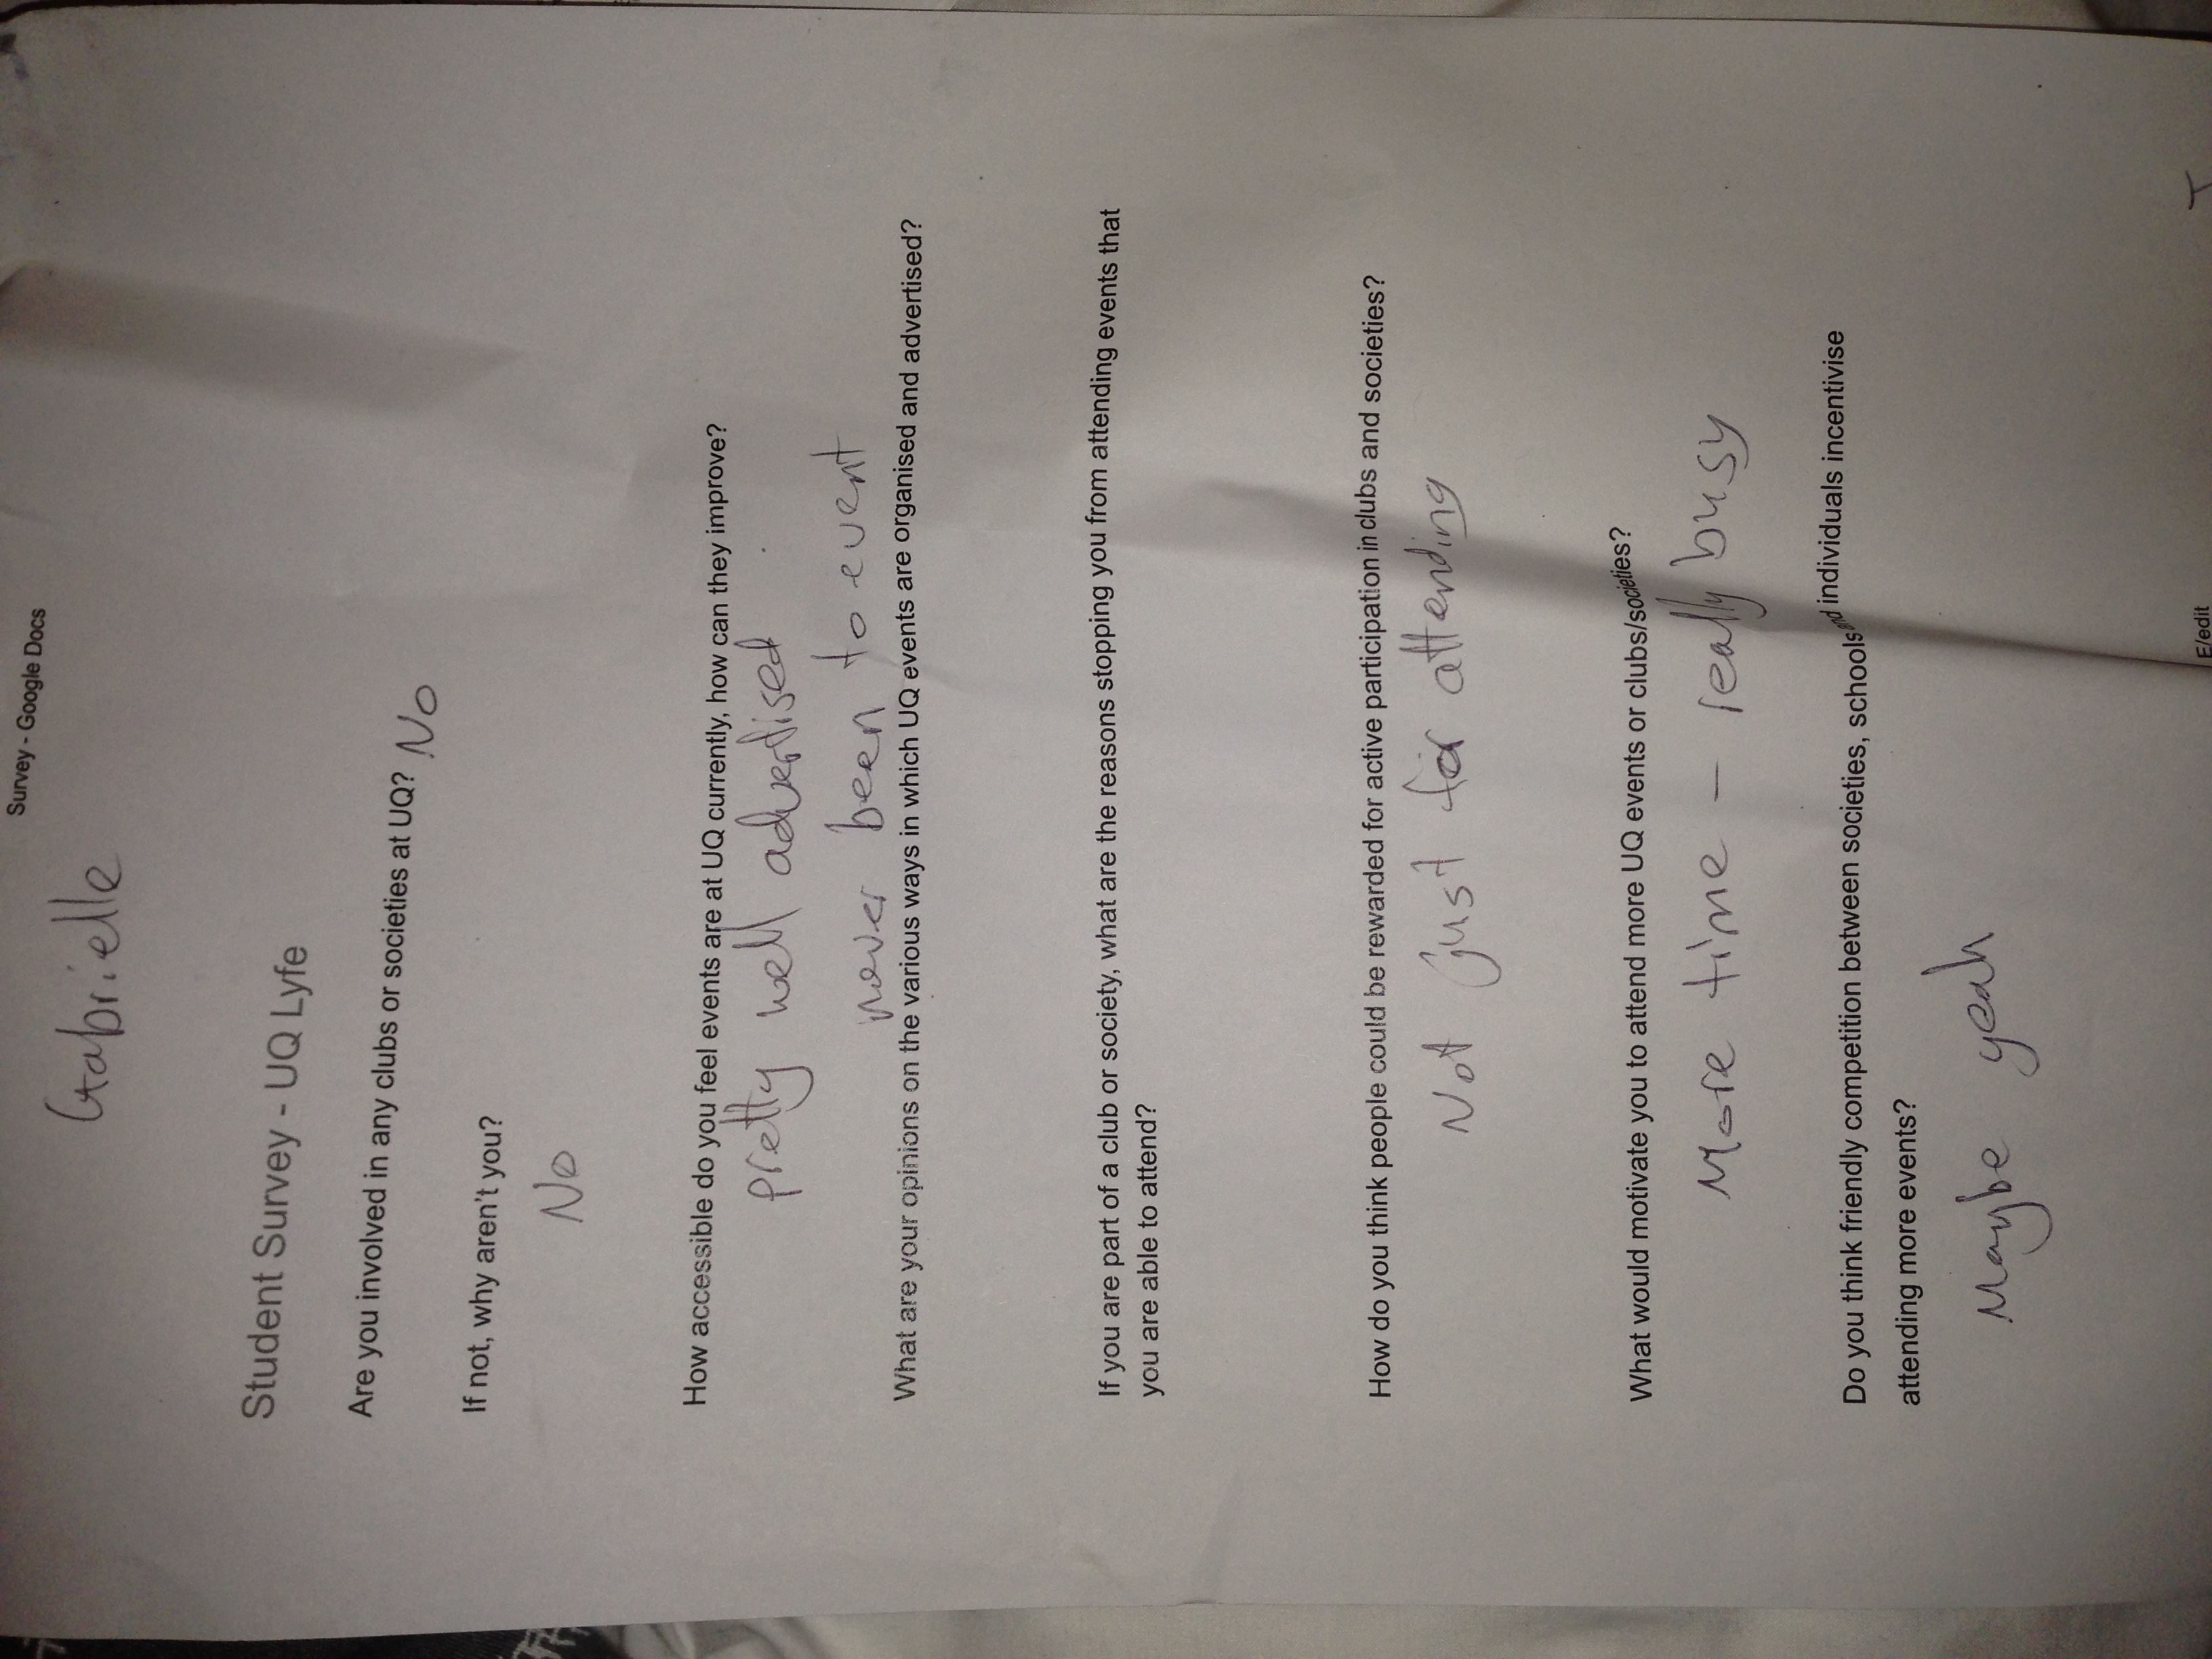 Survey - Google Docs
Gabrielle
Student Survey - UQ Lyfe
Are you involved in any clubs or societies at UQ? No
If not, why aren't you?
No
How accessible do you feel events are at UQ currently, how can they improve?
Pretty well advertised
never been to event
What are your opinions on the various ways in which UQ events are organised and advertised?
If you are part of a club or society, what are the reasons stopping you from attending events that
you are able to attend?
How do you think people could be rewarded for active participation in clubs and societies?
Not just for attending
What would motivate you to attend more UQ events or clubs/societies?
More time - really busy
Do you think friendly competition between societies, schools and individuals incentivise
attending more events?
Maybe yeah
E/edit